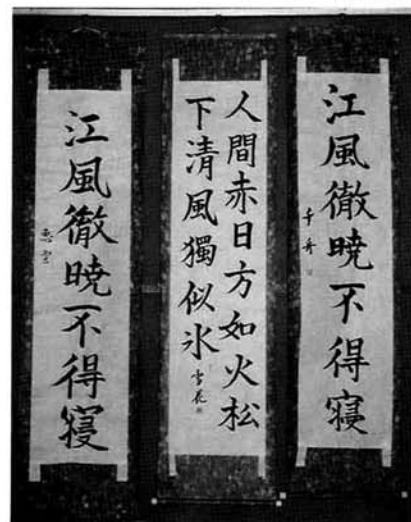 江風徹暁不得寝
人間赤日方如火松
下清風獨似氷
雪花
江風徹暁不得寝